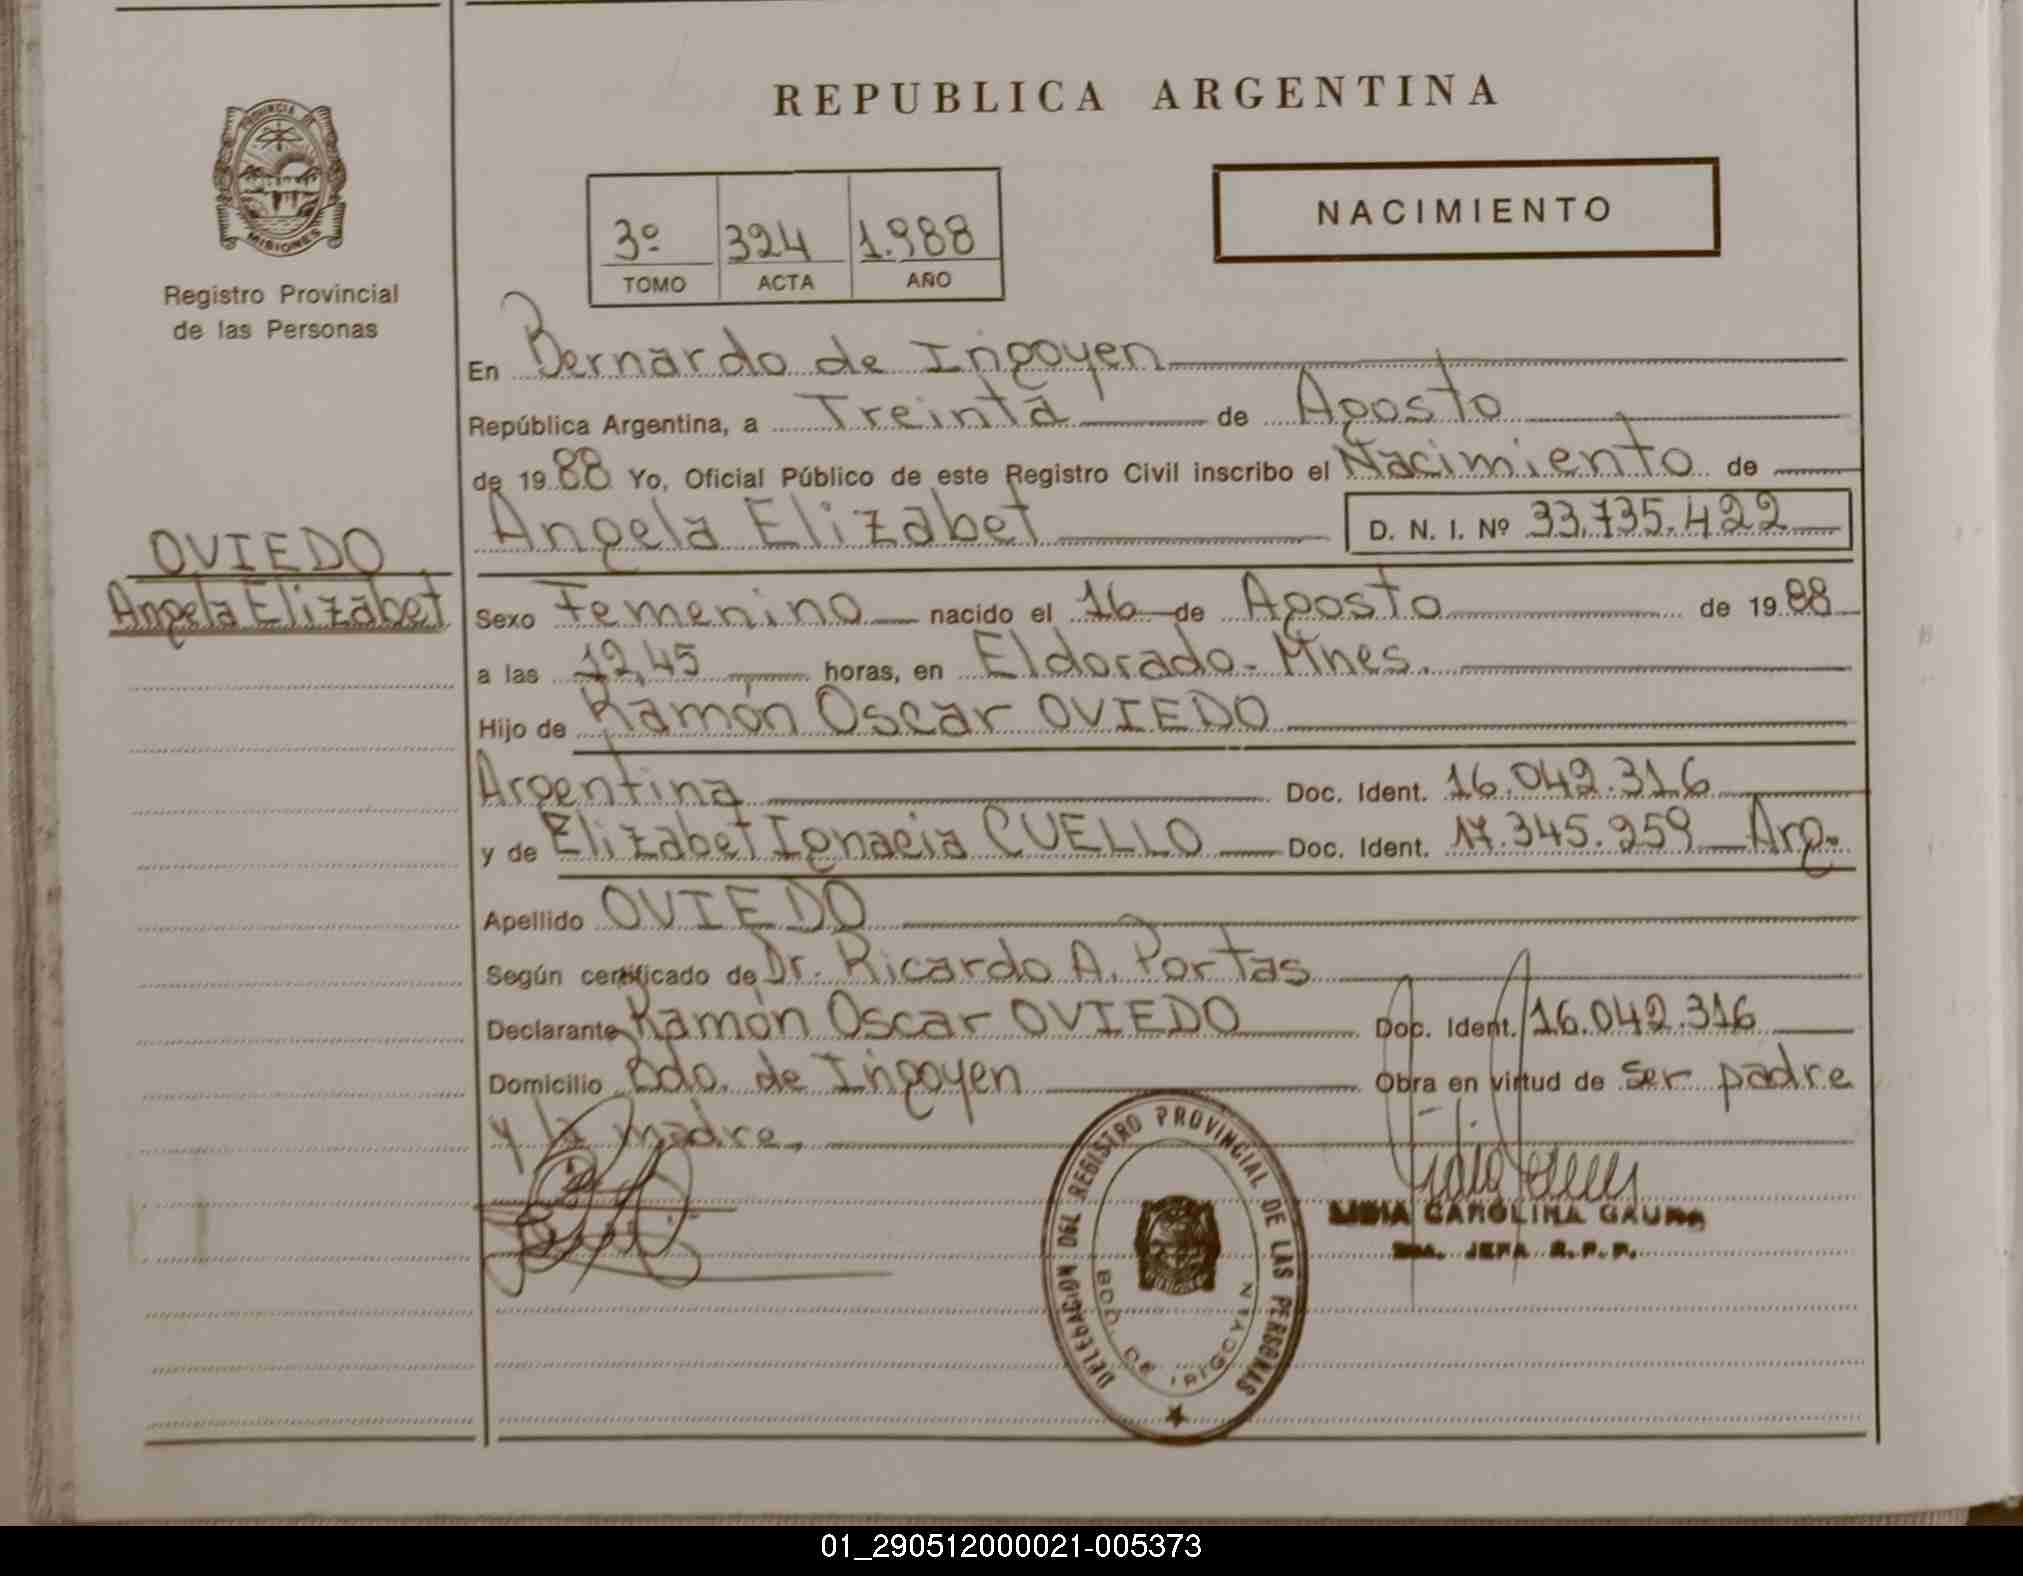 REPUBLICA ARGENTINA
PROVINCIA DE
MISIONES
Registro Provincial
de las Personas
NACIMIENTO
3º 324 1.988
TOMO ACTA AÑO
En Bernardo de Irigoyen
República Argentina, a Treinta de Agosto
de 1988 Yo, Oficial Público de este Registro Civil inscribo el Nacimiento de
Angela Elizabet D. N. I. Nº 33.735.422
OVIEDO
Angela Elizabet
Sexo Femenino nacido el 16 de Agosto de 1988
a las 12,45 horas, en Eldorado - Mnes.
Hijo de Ramón Oscar OVIEDO
Argentina Doc. Ident. 16.042.316
y de Elizabet Ignacia CUELLO Doc. Ident. 17.345.259 Arg.
Apellido OVIEDO
Según certificado de Dr. Ricardo A. Portas
Declarante Ramón Oscar OVIEDO Doc. Ident. 16.042.316
Domicilio Bdo. de Irigoyen Obra en virtud de ser padre
y la madre.
DELEGACION DEL REGISTRO PROVINCIAL DE LAS PERSONAS
BDO. DE IRIGOYEN
LIDIA CAROLINA GAUNA
JEFA R.P.P.
01_290512000021-005373